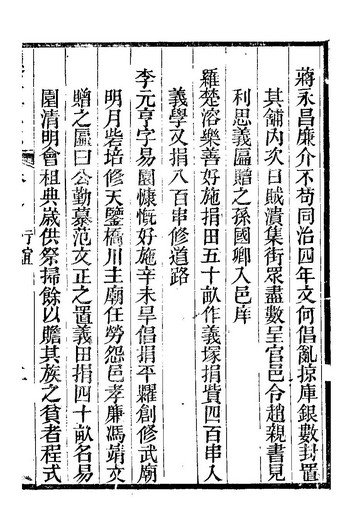 蔣永昌廉介不苟同治四年文何倡亂掠庫銀數封置
其舖內次日賊潰集街眾盡數呈官邑令趙親書見
利思義匾贈之孫國卿入邑庠
羅楚溶樂善好施捐田五十畝作義塚捐貲四百串入
義學又捐八百串修道路
李元亨字易園慷慨好施辛未旱倡捐平糶創修武廟
明月砦培修天鑒橋川主廟任勞怨邑孝廉馮靖文
贈之匾曰公勤慕范文正之置義田捐四十畝名易
園清明會租典歲供祭掃餘以贍其族之貧者程式
行誼